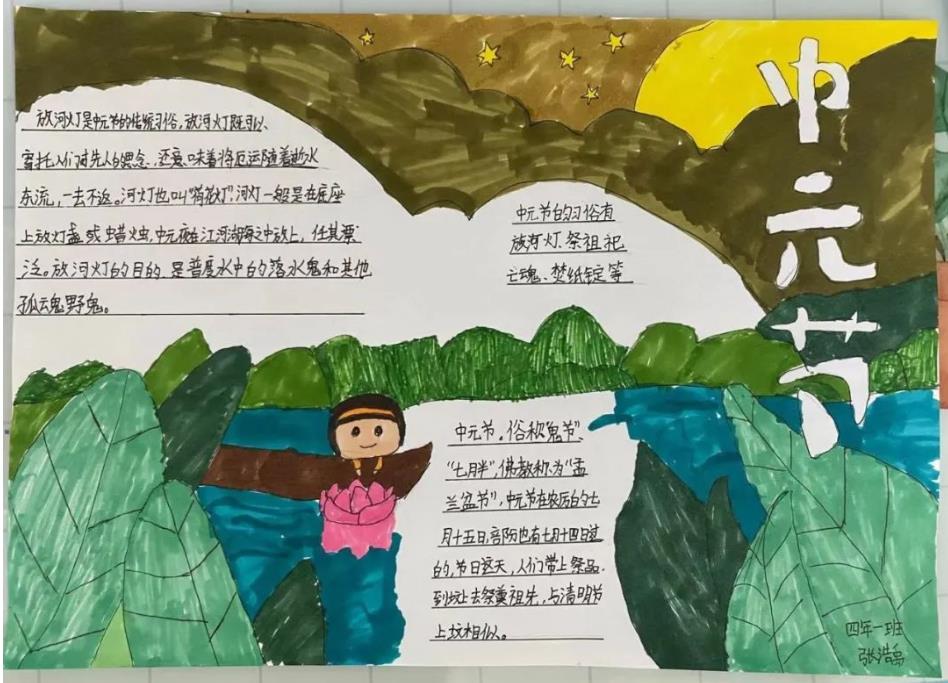 中元节
放河灯是中元节的传统习俗,放河灯既可以、
寄托人们对先人的思念、还意味着将厄运随着逝水
东流,一去不返。河灯也叫“荷花灯”,河灯一般是在底座
上放灯盏或蜡烛,中元夜在江河湖海之中放上,任其漂
泛。放河灯的目的,是普度水中的落水鬼和其他
孤魂野鬼。
中元节的习俗有
放河灯、祭祖、祀
亡魂、焚纸锭等
中元节。俗称“鬼节”、
“七月半”,佛教称为“盂
兰盆节”,中元节在农历的七
月十五日,部份也有七月十四日过
的,节日这天,人们带上祭品、
到坟上去祭奠祖先,与清明节
上坟相似。
四年一班
张浩